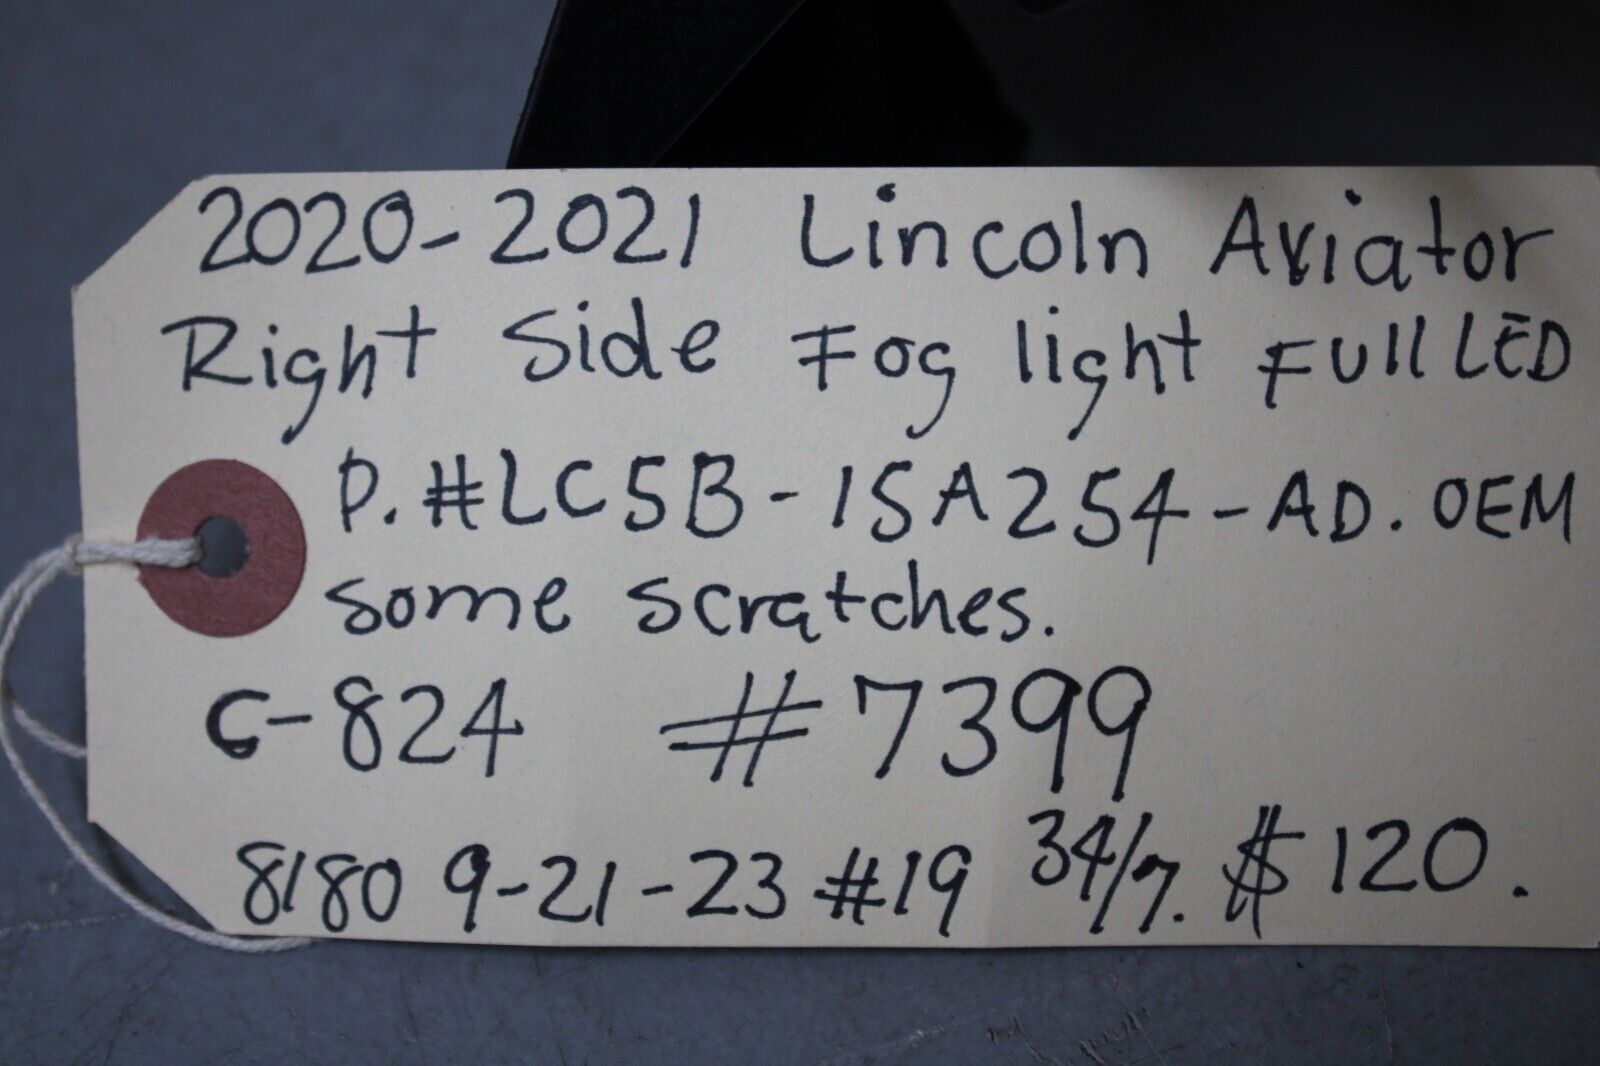 2020-2021 Lincoln Aviator
Right Side Fog light Full LED
P.#LC5B-15A254-AD. OEM
some scratches.
C-824 #7399
8180 9-21-23 #19 34/7. $120.